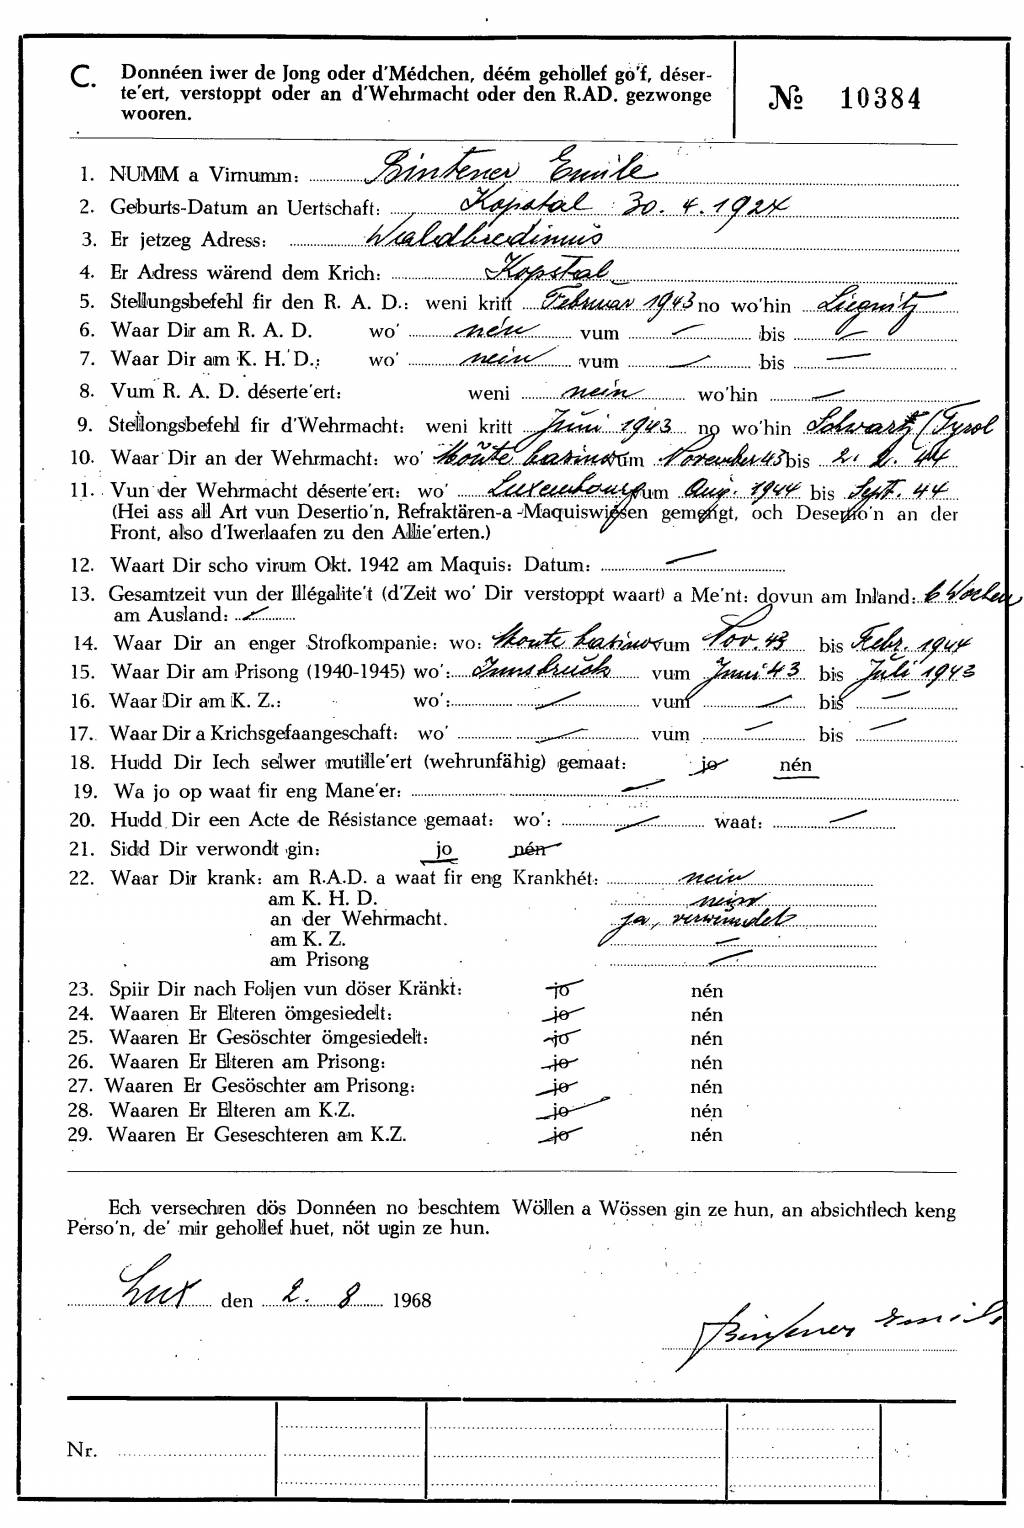 C. Donnéen iwer de Jong oder d'Médchen, déém gehollef go'f, déser-
te'ert, verstoppt oder an d'Wehrmacht oder den R.AD. gezwonge
wooren.
№ 10384
1. NUMM a Virnumm: Bintener Emile
2. Geburts-Datum an Uertschaft: Kopstal 30.4.1924
3. Er jetzeg Adress: Waldbredimus
4. Er Adress wärend dem Krich: Kopstal
5. Stellungsbefehl fir den R. A. D.: weni kritt Februar 1943 no wo'hin Liegnitz
6. Waar Dir am R. A. D. wo' nein vum — bis —
7. Waar Dir am K. H. D.: wo' nein vum — bis —
8. Vum R. A. D. déserte'ert: weni nein wo'hin —
9. Stellongsbefehl fir d'Wehrmacht: weni kritt Juni 1943 no wo'hin Schwartz (Tyrol
10. Waar Dir an der Wehrmacht: wo' Monte Casino vum November 43 bis 2. 2. 44
11. Vun der Wehrmacht déserte'ert: wo' Luxembourg vum Aug. 1944 bis Sept. 44
(Hei ass all Art vun Desertio'n, Refraktären-a -Maquiswiesen gemengt, och Desertio'n an der
Front, also d'Iwerlaafen zu den Allie'erten.)
12. Waart Dir scho virum Okt. 1942 am Maquis: Datum: —
13. Gesamtzeit vun der Illégalite't (d'Zeit wo' Dir verstoppt waart) a Me'nt: dovun am Inland: 6 Wochen
am Ausland: —
14. Waar Dir an enger Strofkompanie: wo: Monte Casino vum Nov. 43 bis Febr. 1944
15. Waar Dir am Prisong (1940-1945) wo': Innsbruck vum Juni 43 bis Juli 1943
16. Waar Dir am K. Z.: wo': — vum — bis —
17. Waar Dir a Krichsgefaangeschaft: wo' — vum — bis —
18. Hudd Dir Iech selwer mutille'ert (wehrunfähig) gemaat: jo nén
19. Wa jo op waat fir eng Mane'er: —
20. Hudd Dir een Acte de Résistance gemaat: wo': — waat: —
21. Sidd Dir verwondt gin: jo nén
22. Waar Dir krank: am R.A.D. a waat fir eng Krankhét: nein
am K. H. D. nein
an der Wehrmacht. ja, verwundet
am K. Z. —
am Prisong —
23. Spiir Dir nach Foljen vun döser Kränkt: jo nén
24. Waaren Er Elteren ömgesiedelt: jo nén
25. Waaren Er Gesöschter ömgesiedelt: jo nén
26. Waaren Er Elteren am Prisong: jo nén
27. Waaren Er Gesöschter am Prisong: jo nén
28. Waaren Er Elteren am K.Z. jo nén
29. Waaren Er Geseschteren am K.Z. jo nén
Ech versechren dös Donnéen no beschtem Wöllen a Wössen gin ze hun, an absichtlech keng
Perso'n, de' mir gehollef huet, nöt ugin ze hun.
Lux den 2. 8 1968
Bintener Emile
Nr.